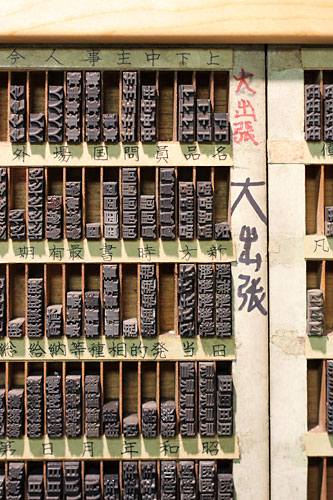 上下中主事人令
名品員問国場外
新方時書最有期
田当発的相種等納給総
昭和年月日第
大出張
大出張
凡